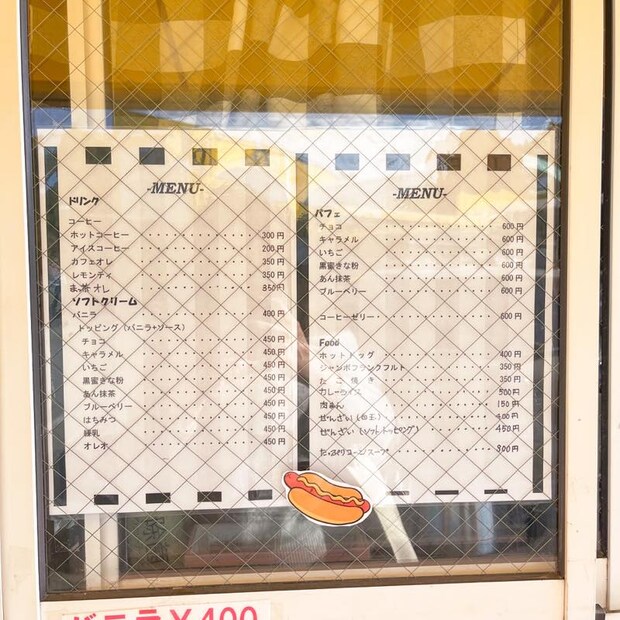 -MENU-
ドリンク
コーヒー
ホットコーヒー 300円
アイスコーヒー 200円
カフェオレ 350円
レモンティ 350円
まっ茶オレ 350円
ソフトクリーム
バニラ 400円
トッピング(バニラ+ソース)
チョコ 450円
キャラメル 450円
いちご 450円
黒蜜きな粉 450円
あん抹茶 450円
ブルーベリー 450円
はちみつ 450円
練乳 450円
オレオ 450円
-MENU-
パフェ
チョコ 600円
キャラメル 600円
いちご 600円
黒蜜きな粉 600円
あん抹茶 600円
ブルーベリー 600円
コーヒーゼリー 600円
Food
ホットドッグ 400円
ジャンボフランクフルト 350円
たこ焼き 350円
カレーライス 500円
肉まん 150円
ぜんざい(白玉) 400円
ぜんざい(ソフトトッピング) 450円
たっぷりコーンスープ 300円
バニラ¥400